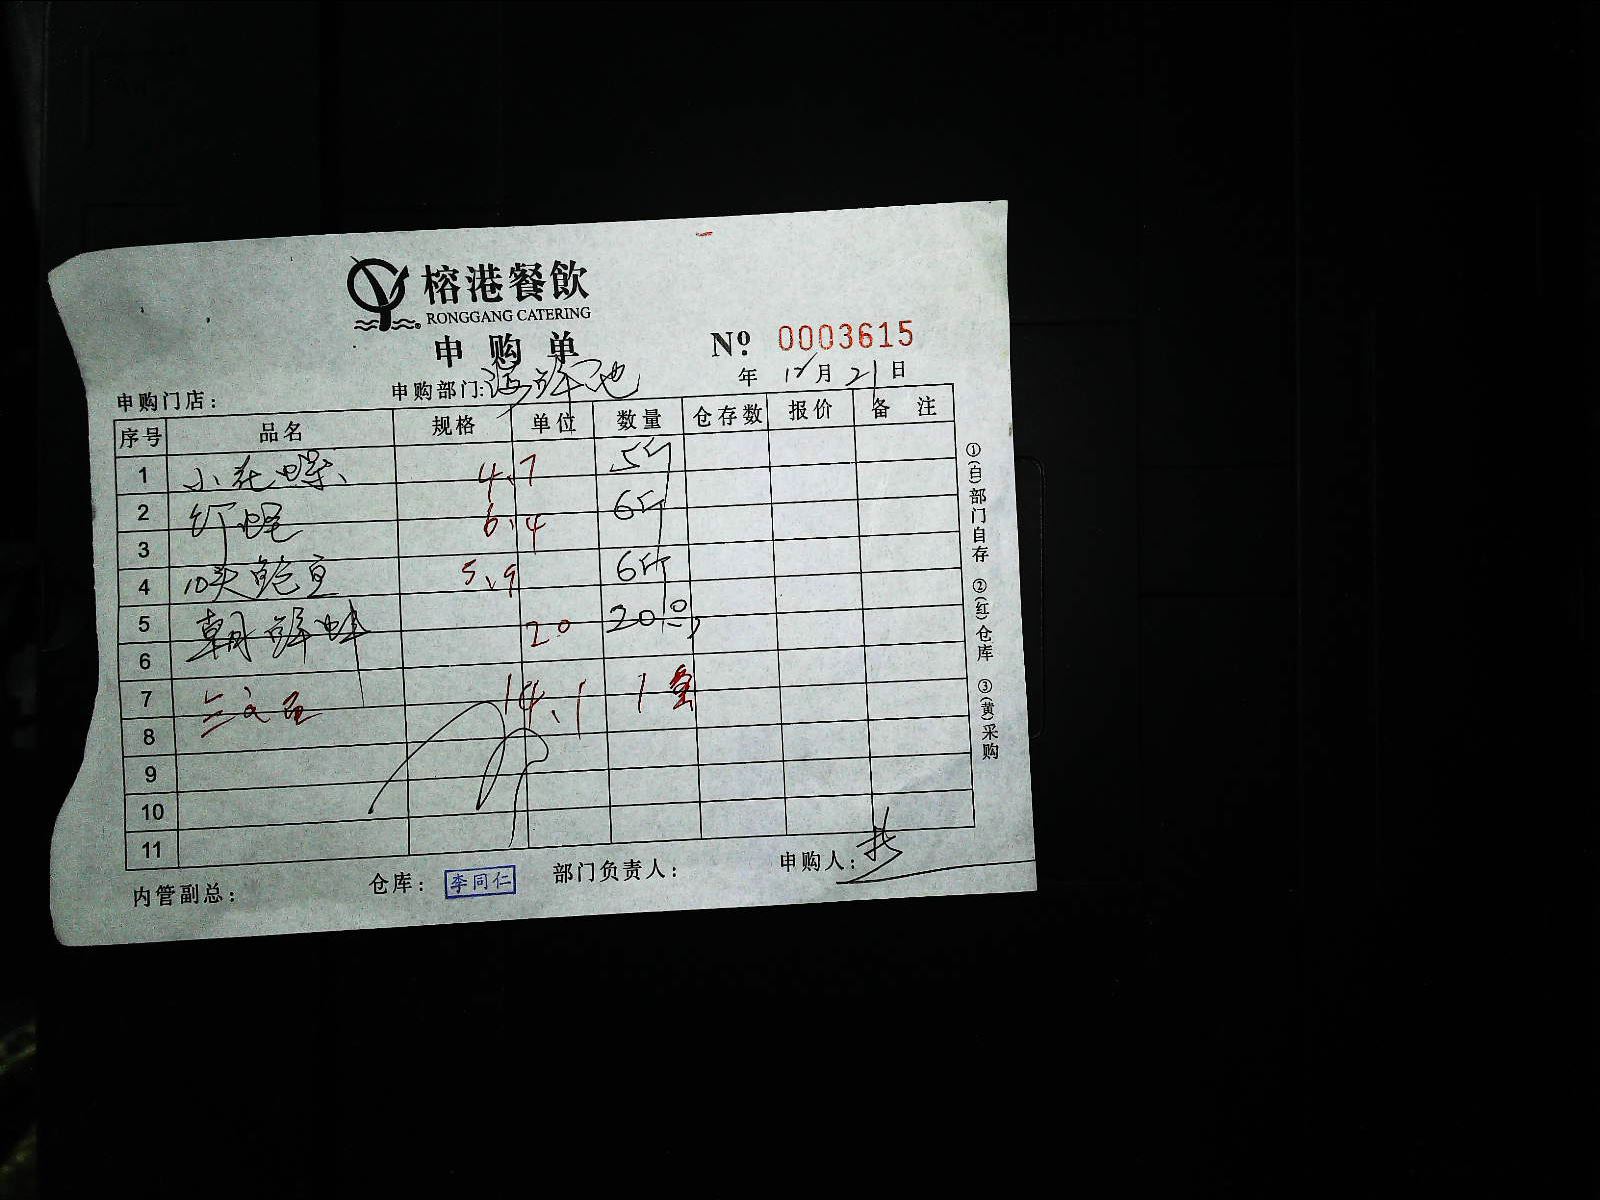 榕港餐飲
RONGGANG CATERING
申购单
Nº 0003615
申购门店: 申购部门:海鲜池 年 12月21日
序号 品名 规格 单位 数量 仓存数 报价 备注
1 小花螺 4.7 5斤
2 红螺 6.4 6斤
3
4 10头鲍鱼 5.9 6斤
5 朝鲜蚌 20 20个
6
7 三文鱼 14.1 1
8
9
10
11
内管副总: 仓库: 李同仁 部门负责人: 申购人:
①(白)部门自存 ②(红)仓库 ③(黄)采购